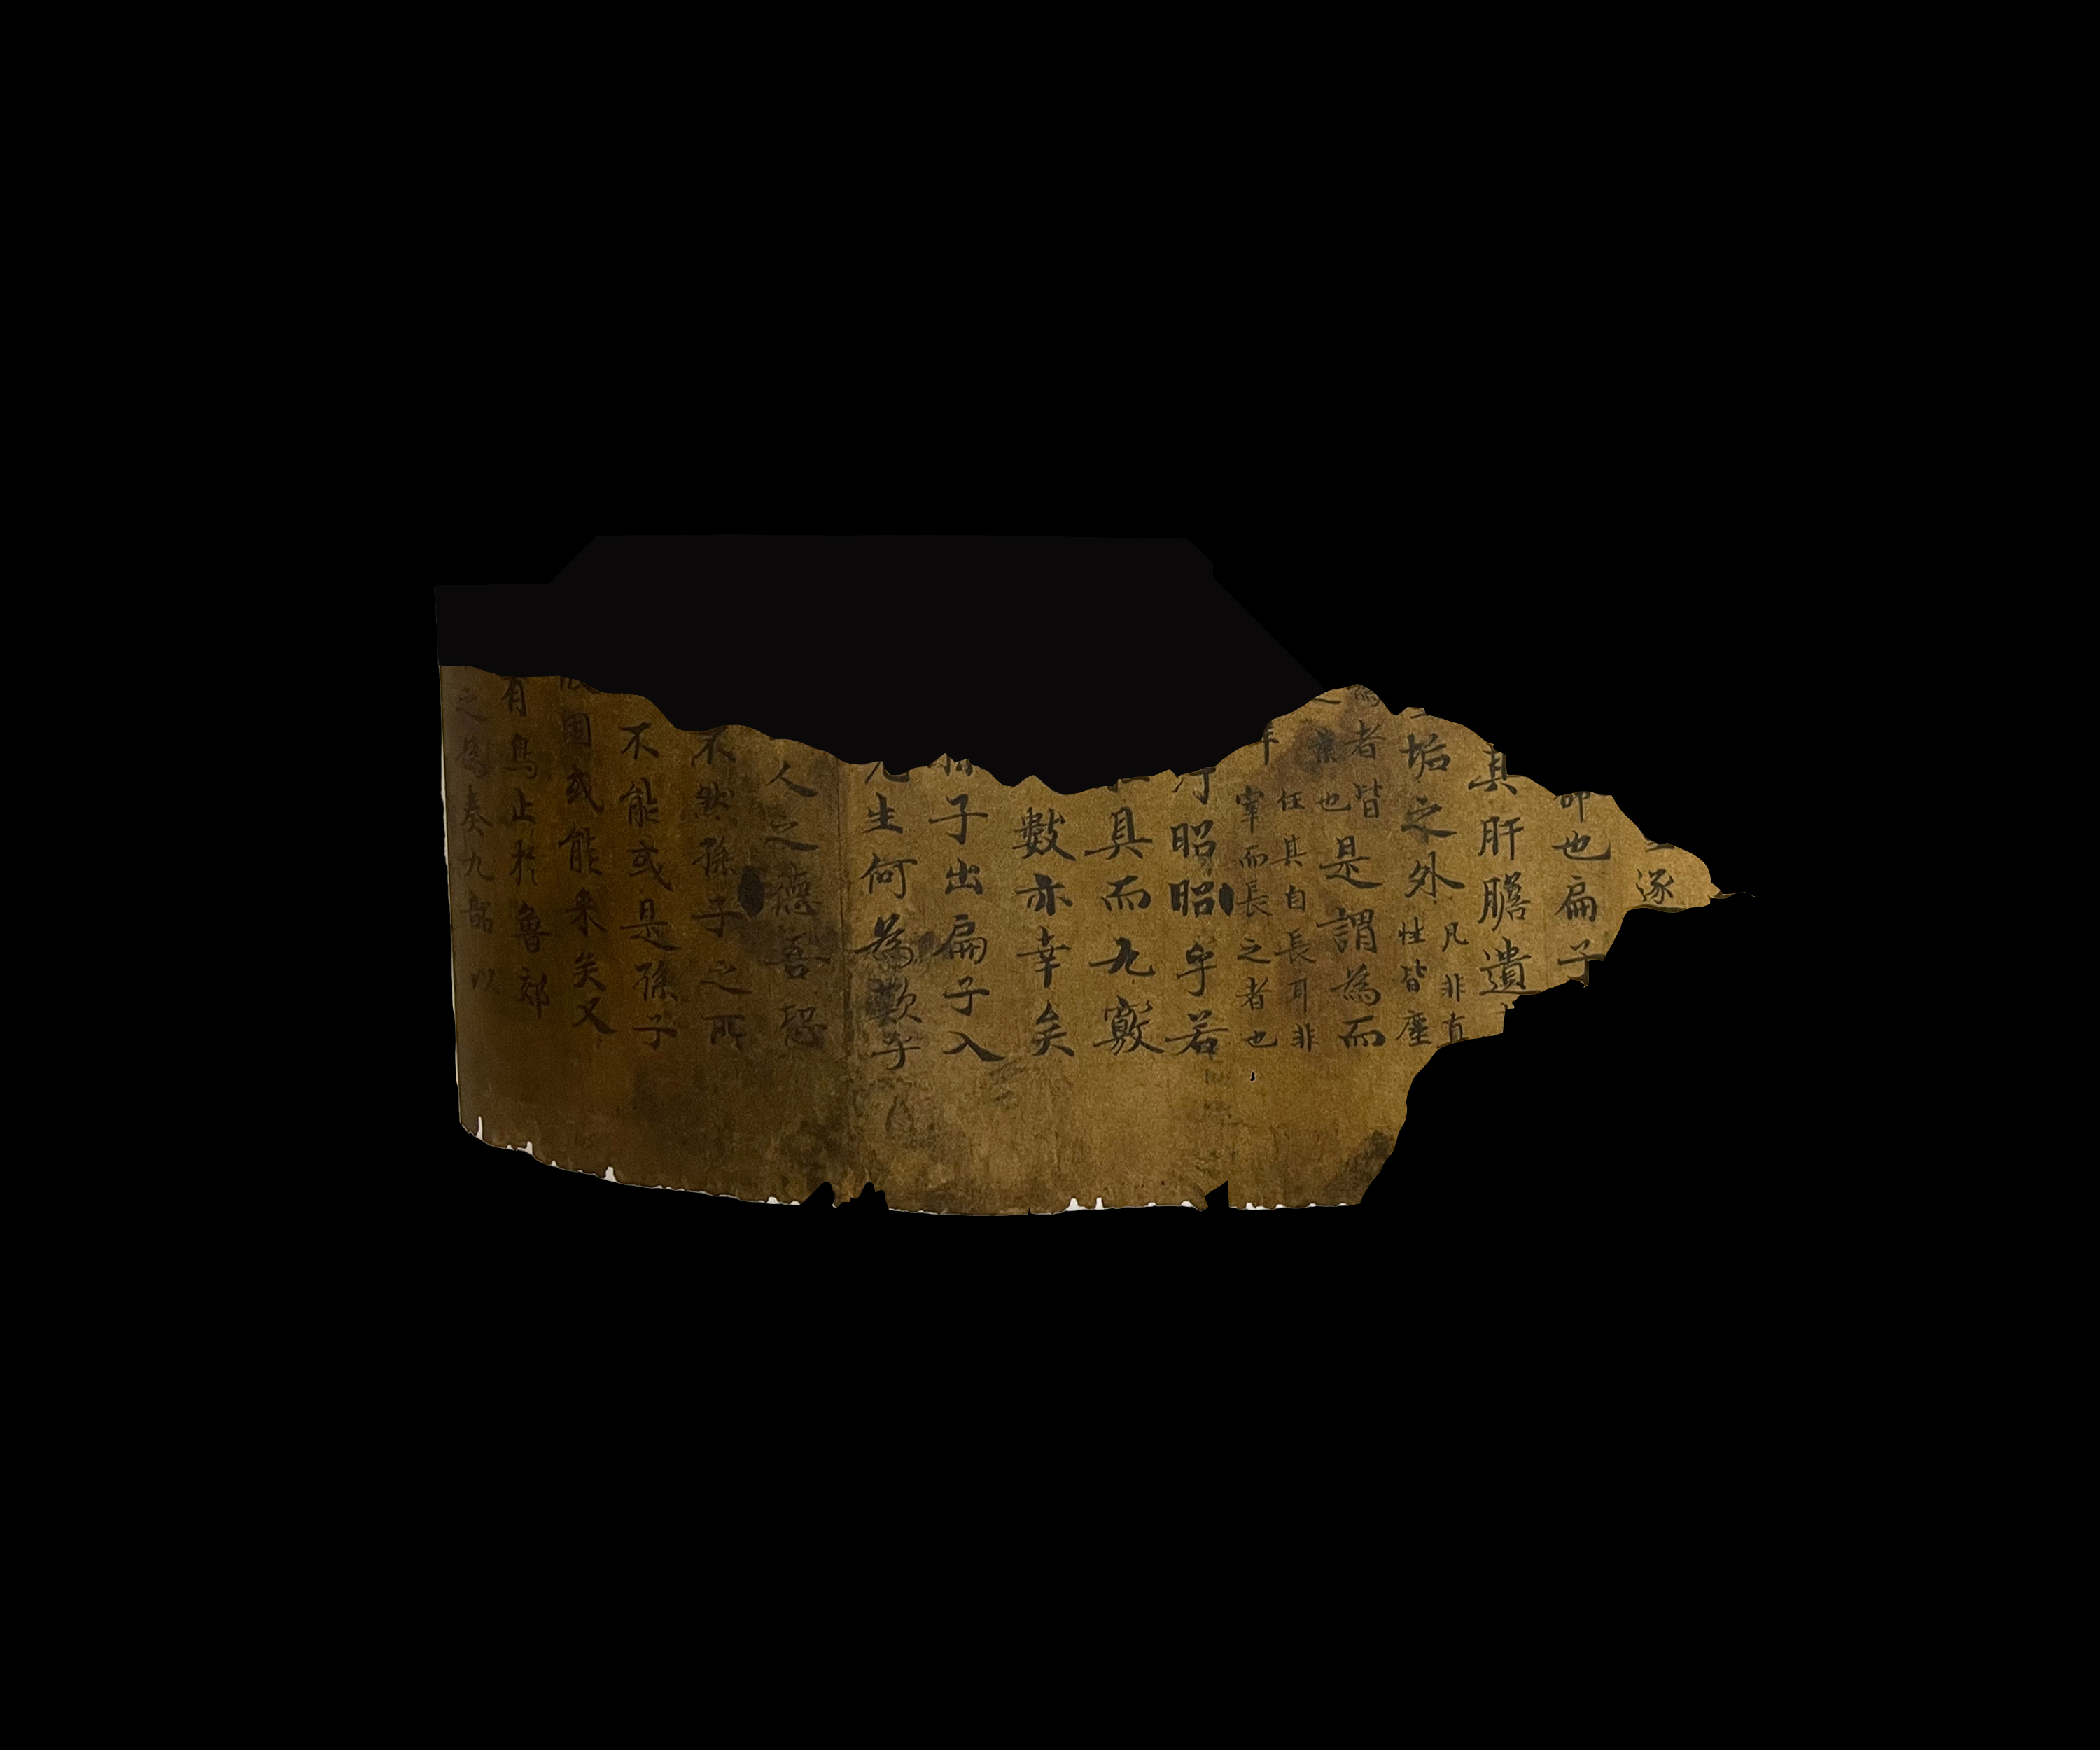 逐
命也扁子
其肝膽遺
垢之外
凡非真
性皆塵
者皆
業也
是謂為而
任其自長耳非
宰而長之者也
汙昭昭乎若
具而九竅
數亦幸矣
子出扁子入
生何為歎乎
人之德吾恐
不然孫子之所
不能或是孫子
固或能来矣又
有鳥止於魯郊
之為奏九韶以